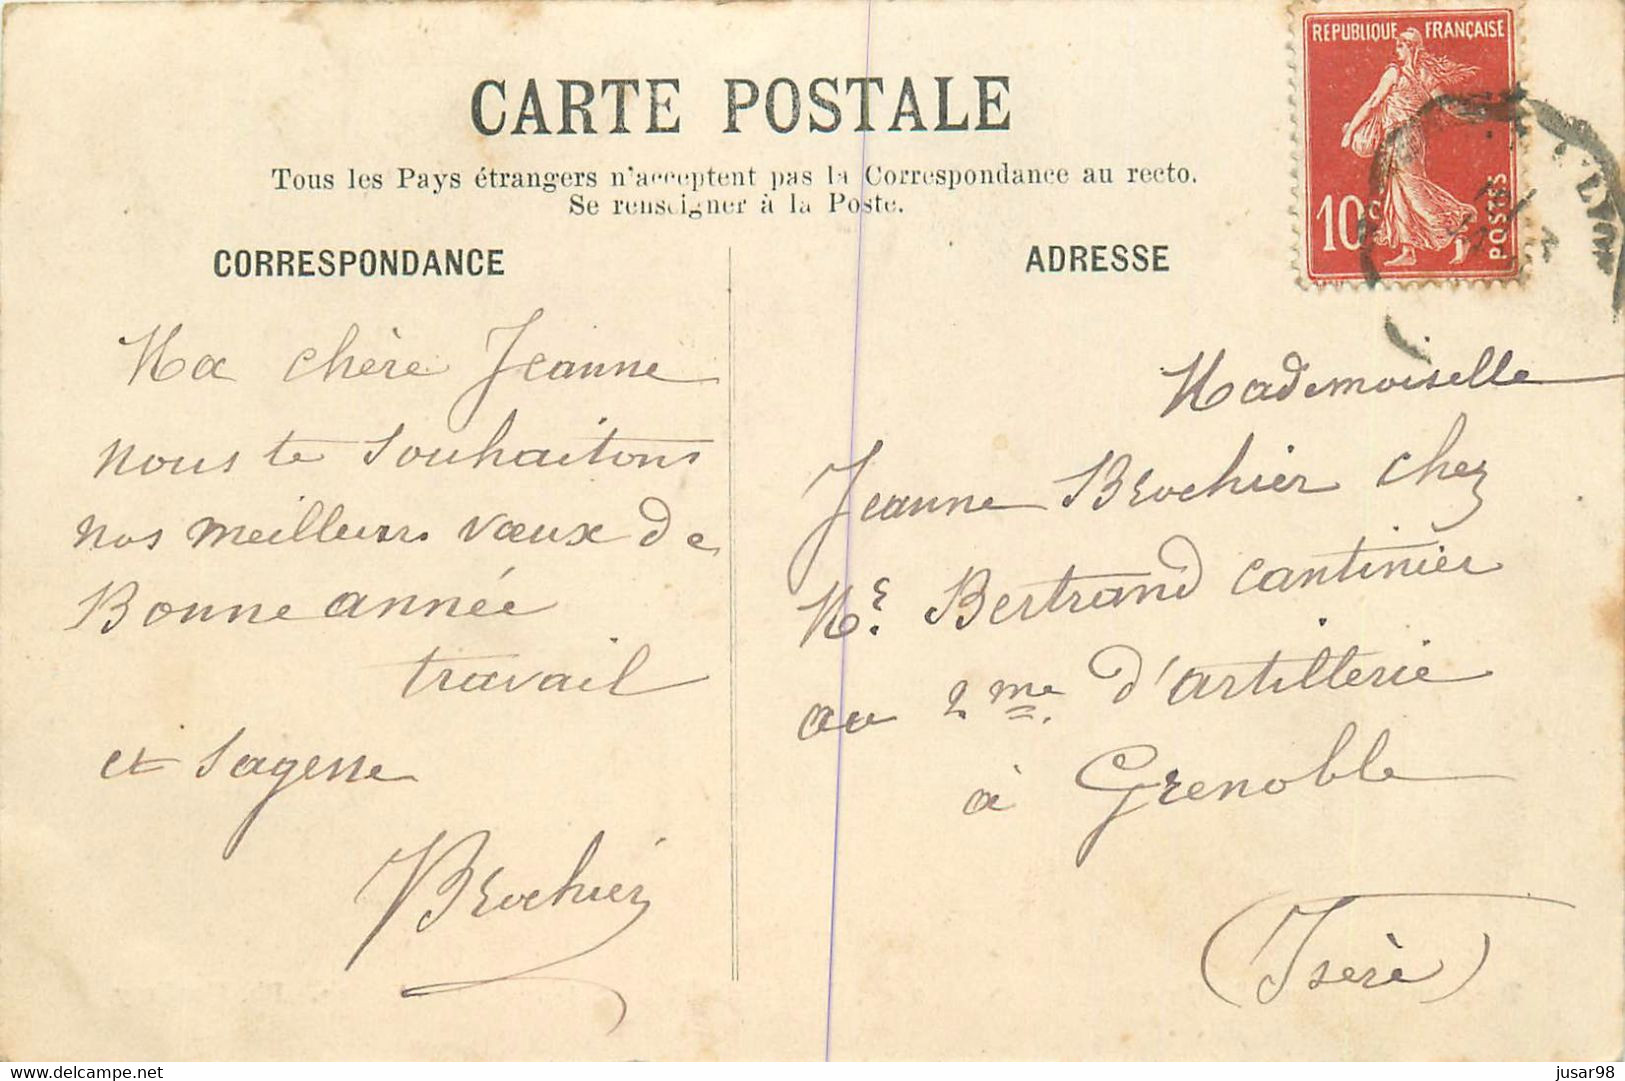 CARTE POSTALE
Tous les Pays étrangers n'acceptent pas la Correspondance au recto.
Se renseigner à la Poste.
CORRESPONDANCE
Ma chère Jeanne
nous te souhaitons
nos meilleurs vœux de
Bonne année
travail
et sagesse
Brochier
ADRESSE
REPUBLIQUE FRANÇAISE
10c
POSTES
LYON
Mademoiselle
Jeanne Brochier chez
Mr. Bertrand cantinier
au 2me. d'artillerie
à Grenoble
(Isère)
www.delcampe.net
jusar98